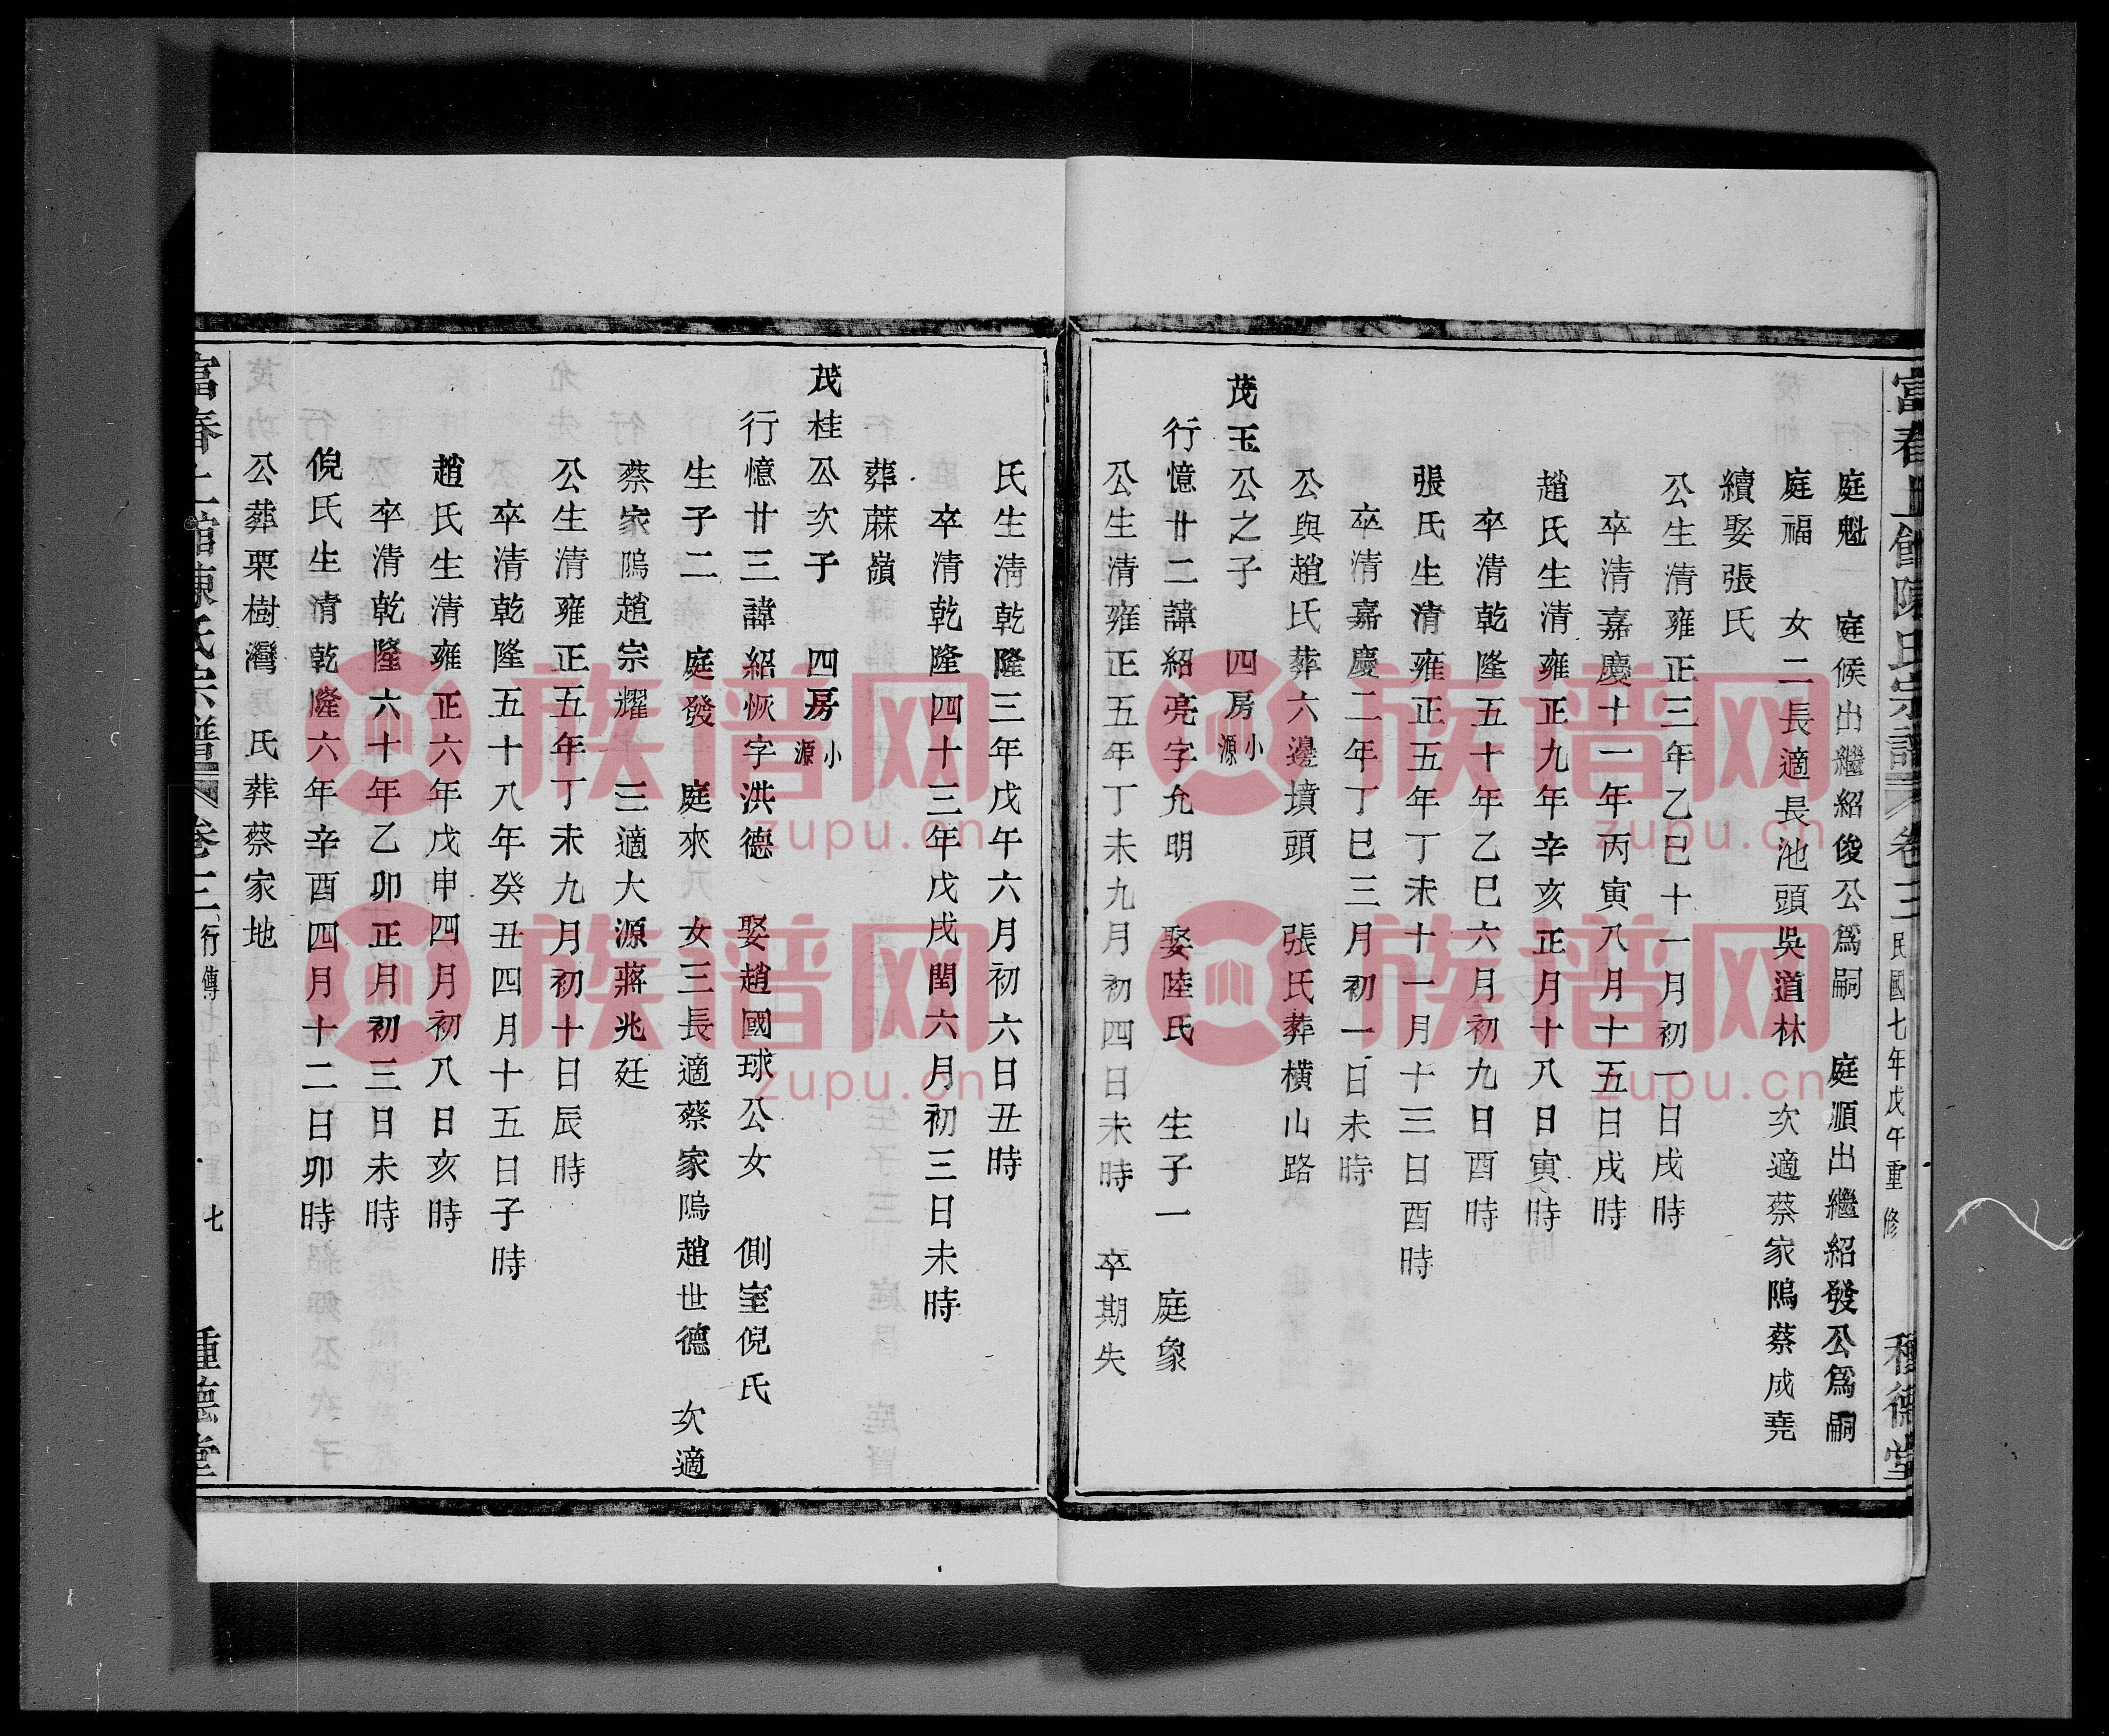 富春上館陳氏宗譜 卷三 民國七年戊午重修 種德堂
庭魁 庭候出繼紹俊公爲嗣 庭順出繼紹發公爲嗣
庭福 女二長適長池頭吳道林 次適蔡家隖蔡成堯
續娶張氏
公生清雍正三年乙巳十一月初一日戌時
卒清嘉慶十一年丙寅八月十五日戌時
趙氏生清雍正九年辛亥正月十八日寅時
卒清乾隆五十年乙巳六月初九日酉時
張氏生清雍正五年丁未十一月十三日酉時
卒清嘉慶二年丁巳三月初一日未時
公與趙氏葬六邊墳頭 張氏葬橫山路
茂玉公之子 四房小源
行憶廿二諱紹亮字允明 娶陸氏 生子一 庭象
公生清雍正五年丁未九月初四日未時 卒期失
氏生淸乾隆三年戊午六月初六日丑時
卒清乾隆四十三年戊戌閏六月初三日未時
葬蔴嶺
茂桂公次子 四房小源
行憶廿三諱紹恢字洪德 娶趙國球公女 側室倪氏
生子二 庭發 庭來 女三長適蔡家隖趙世德 次適
蔡家隖趙宗耀 三適大源蔣兆廷
公生清雍正五年丁未九月初十日辰時
卒清乾隆五十八年癸丑四月十五日子時
趙氏生清雍正六年戊申四月初八日亥時
卒清乾隆六十年乙卯正月初三日未時
倪氏生清乾隆六年辛酉四月十二日卯時
公葬栗樹灣 氏葬蔡家地
富春上館陳氏宗譜 卷三 行傳 七 種德堂
族谱网
zupu.cn
族谱网
zupu.cn
族谱网
zupu.cn
族谱网
zupu.cn